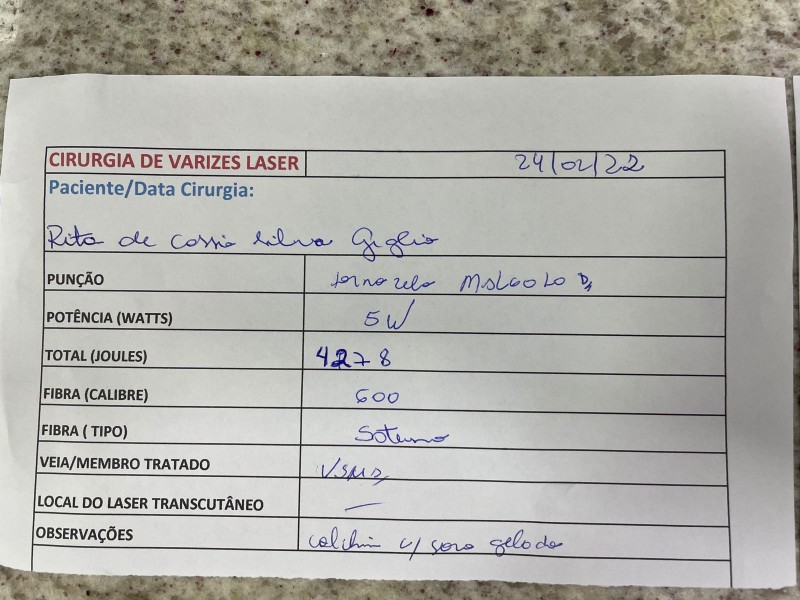 CIRURGIA DE VARIZES LASER 24/02/22
Paciente/Data Cirurgia:
Rita de Cassia Silva Giglio
PUNÇÃO tornozelo
POTÊNCIA (WATTS) 5W
TOTAL (JOULES) 4278
FIBRA (CALIBRE) 600
FIBRA ( TIPO)
VEIA/MEMBRO TRATADO
LOCAL DO LASER TRANSCUTÂNEO —
OBSERVAÇÕES c/ soro gelado